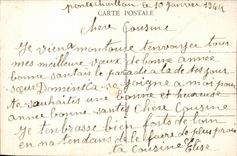 pontchaillou le 10 janvier 1944
CARTE POSTALE
chere Cousine
Je viens mon tour t'envoyer tous
mes meilleur vœux de bonne année
bonne santé le paradis a la de tes jour
sœur Doménica se joigne a moi pour
te vauhaités une bonne et heureuse
année bonne santé Chère Cousine
Je tenbrasse bien forts de loin
en natendans de le faire de plus près
ta Cousine Elise